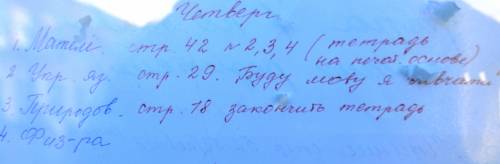 Четверг
1. Матем. стр. 42 № 2, 3, 4 (тетрадь
на печат. основе)
2 Укр. яз. стр. 29. Буду мову я вивчати
3 Природов. стр. 18 закончить тетрадь
4. Физ-ра